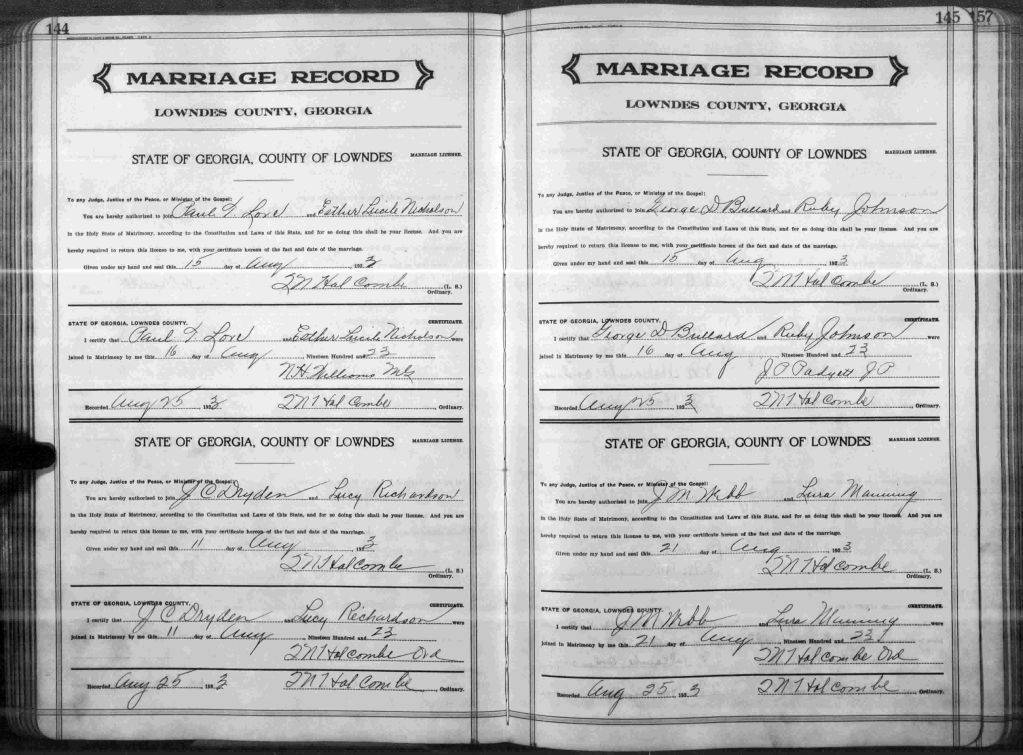 144
MARRIAGE RECORD
LOWNDES COUNTY, GEORGIA
STATE OF GEORGIA, COUNTY OF LOWNDES MARRIAGE LICENSE.
To any Judge, Justice of the Peace, or Minister of the Gospel:
You are hereby authorized to join Paul T Love and Esther Lucile Nicholson
in the Holy State of Matrimony, according to the Constitution and Laws of this State, and for so doing this shall be your license. And you are
hereby required to return this license to me, with your certificate hereon of the fact and date of the marriage.
Given under my hand and seal this 15 day of Aug 1923
Holcombe (L. S.)
Ordinary.
STATE OF GEORGIA, LOWNDES COUNTY. CERTIFICATE.
I certify that Paul T Love and Esther Lucile Nicholson were
joined in Matrimony by me this 16 day of Aug Nineteen Hundred and 23
N.H. Williams MG
Recorded Aug 25 1923 Holcombe, Ordinary.
STATE OF GEORGIA, COUNTY OF LOWNDES MARRIAGE LICENSE.
To any Judge, Justice of the Peace, or Minister of the Gospel:
You are hereby authorized to join J C Dryden and Lucy Richardson
in the Holy State of Matrimony, according to the Constitution and Laws of this State, and for so doing this shall be your license. And you are
hereby required to return this license to me, with your certificate hereon of the fact and date of the marriage.
Given under my hand and seal this 11 day of Aug 1923
Holcombe (L. S.)
Ordinary.
STATE OF GEORGIA, LOWNDES COUNTY. CERTIFICATE.
I certify that J C Dryden and Lucy Richardson were
joined in Matrimony by me this 11 day of Aug Nineteen Hundred and 23
Holcombe Ord
Recorded Aug 25 1923 Holcombe, Ordinary.
145 157
MARRIAGE RECORD
LOWNDES COUNTY, GEORGIA
STATE OF GEORGIA, COUNTY OF LOWNDES MARRIAGE LICENSE.
To any Judge, Justice of the Peace, or Minister of the Gospel:
You are hereby authorized to join George D Bullard and Ruby Johnson
in the Holy State of Matrimony, according to the Constitution and Laws of this State, and for so doing this shall be your license. And you are
hereby required to return this license to me, with your certificate hereon of the fact and date of the marriage.
Given under my hand and seal this 15 day of Aug 1923
Holcombe (L. S.)
Ordinary.
STATE OF GEORGIA, LOWNDES COUNTY. CERTIFICATE.
I certify that George D Bullard and Ruby Johnson were
joined in Matrimony by me this 16 day of Aug Nineteen Hundred and 23
J P Padgett J P
Recorded Aug 25 1923 Holcombe, Ordinary.
STATE OF GEORGIA, COUNTY OF LOWNDES MARRIAGE LICENSE.
To any Judge, Justice of the Peace, or Minister of the Gospel:
You are hereby authorized to join J M Webb and Lura Manning
in the Holy State of Matrimony, according to the Constitution and Laws of this State, and for so doing this shall be your license. And you are
hereby required to return this license to me, with your certificate hereon of the fact and date of the marriage.
Given under my hand and seal this 21 day of Aug 1923
Holcombe (L. S.)
Ordinary.
STATE OF GEORGIA, LOWNDES COUNTY. CERTIFICATE.
I certify that J M Webb and Lura Manning were
joined in Matrimony by me this 21 day of Aug Nineteen Hundred and 23
Holcombe Ord
Recorded Aug 25 1923 Holcombe, Ordinary.